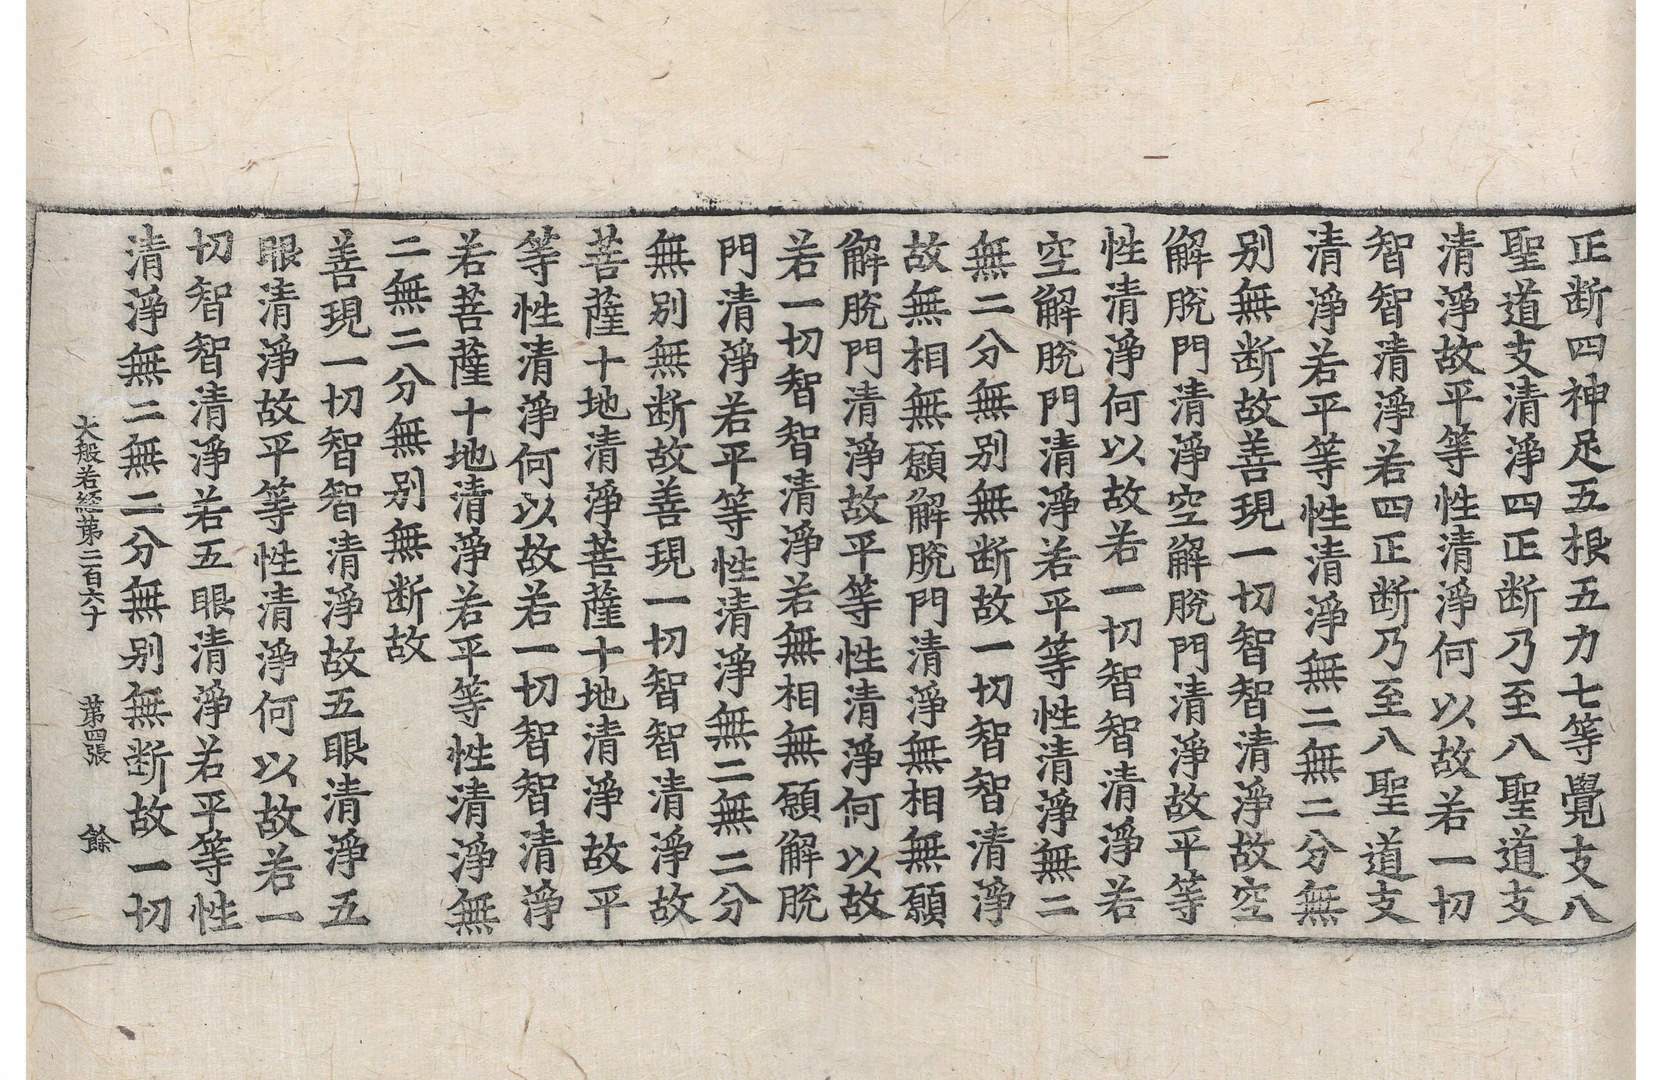 正断四神足五根五力七等覺支八
聖道支清淨四正断乃至八聖道支
清淨故平等性清淨何以故若一切
智智清淨若四正断乃至八聖道支
清淨若平等性清淨無二無二分無
别無断故善現一切智智清淨故空
解脫門清淨空解脫門清淨故平等
性清淨何以故若一切智智清淨若
空解脫門清淨若平等性清淨無二
無二分無别無断故一切智智清淨
故無相無願解脫門清淨無相無願
解脫門清淨故平等性清淨何以故
若一切智智清淨若無相無願解脫
門清淨若平等性清淨無二無二分
無别無断故善現一切智智清淨故
菩薩十地清淨菩薩十地清淨故平
等性清淨何以故若一切智智清淨
若菩薩十地清淨若平等性清淨無
二無二分無别無断故
善現一切智智清淨故五眼清淨五
眼清淨故平等性清淨何以故若一
切智智清淨若五眼清淨若平等性
清淨無二無二分無别無断故一切
大般若経第二百六十 第四張 餘